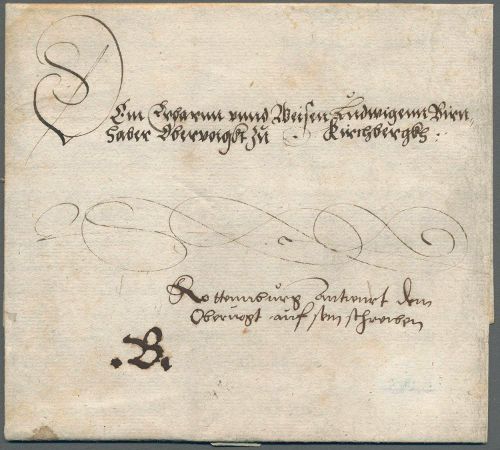 Dem Erbarnn vnnd Weisen Ludwigenn Birn
haber Obervogkt zu Kirchbergkh:
Rottennburg Antwurt dem
Obervogt auf sein schreiben
.B.